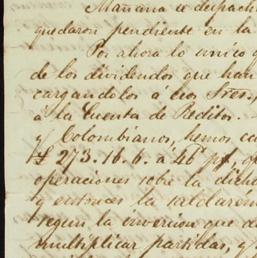 Mañana se despach
quedaron pendiente en la
Por ahora lo unico q
de los dividendos que han
cargandolos a los Sres.
á la Cuenta de Reditos.
y Colombianos, hemos ca
£ 273.16.6. a 46 p%, o
operaciones sobre la dich
y entonces la saldarem
segun la inversion que d
multiplicar partidas, y